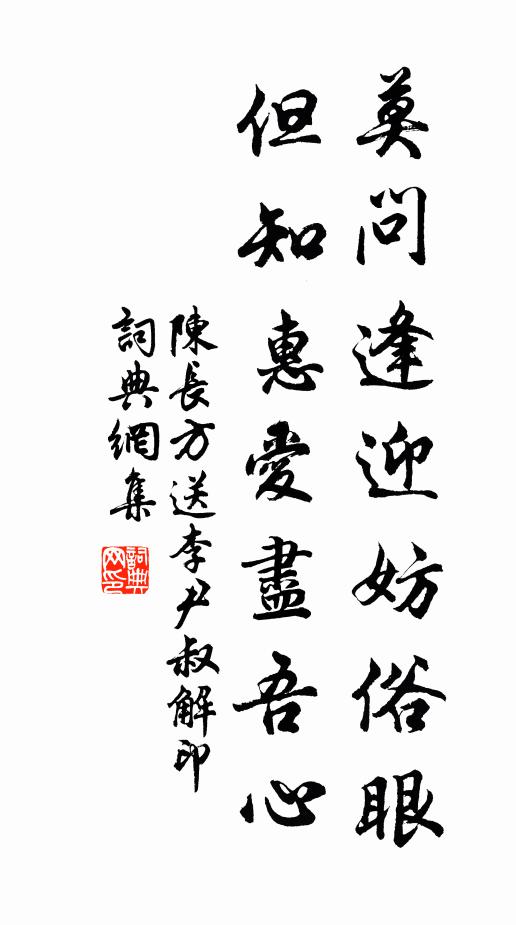 莫問逢迎妨俗眼
但知惠愛盡吾心
陳長方送李尹叔解印
詞典網集
詞典網印